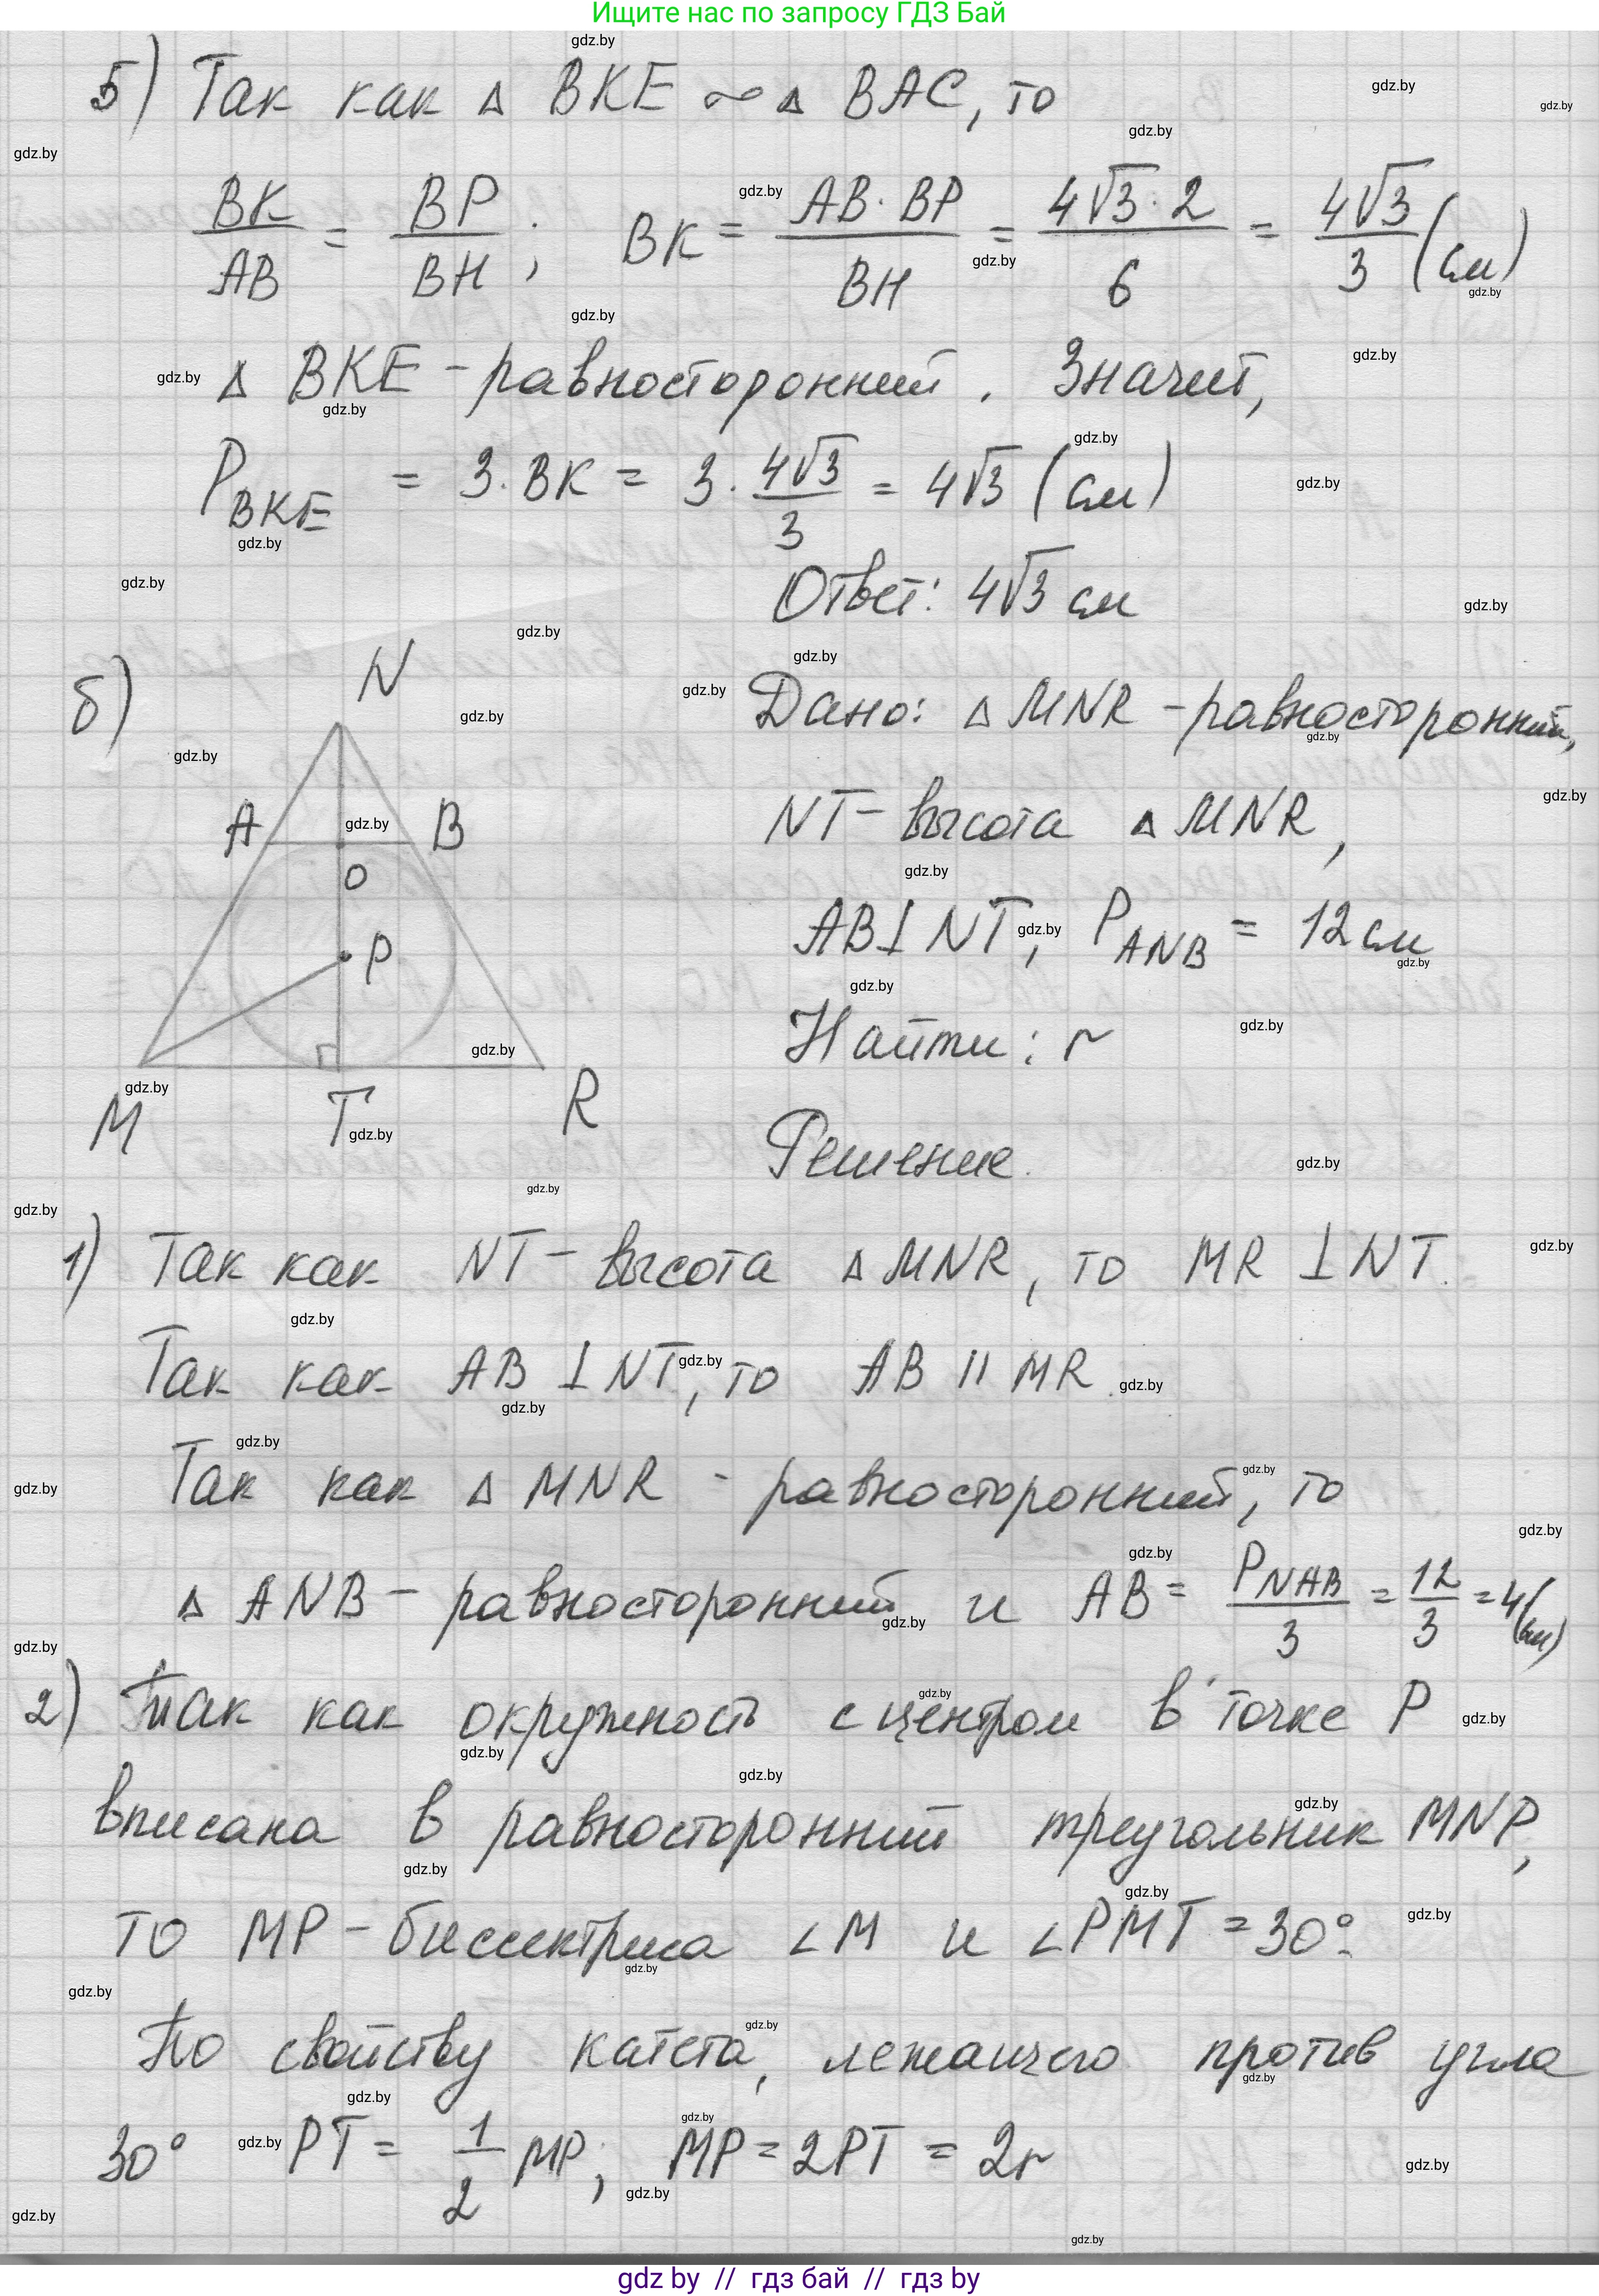 Ищите нас по запросу ГДЗ Бай
5) Так как Δ BKE ∾ Δ BAC, то
BK/AB = BP/BH; BK = AB·BP/BH = 4√3·2/6 = 4√3/3 (см)
Δ BKE - равносторонний. Значит,
P_BKE = 3·BK = 3·4√3/3 = 4√3 (см)
Ответ: 4√3 см
б)
N
A B
O
P
M T R
Дано: Δ MNR - равносторонний,
NT - высота Δ MNR,
AB ⊥ NT, P_ANB = 12 см
Найти: r
Решение.
1) Так как NT - высота Δ MNR, то MR ⊥ NT.
Так как AB ⊥ NT, то AB || MR.
Так как Δ MNR - равносторонний, то
Δ ANB - равносторонний и AB = P_NAB/3 = 12/3 = 4 (см)
2) Так как окружность с центром в точке P
вписана в равносторонний треугольник MNP,
то MP - биссектриса ∠M и ∠PMT = 30°.
По свойству катета, лежащего против угла
30° PT = 1/2 MP; MP = 2PT = 2r
gdz by // гдз бай // гдз by